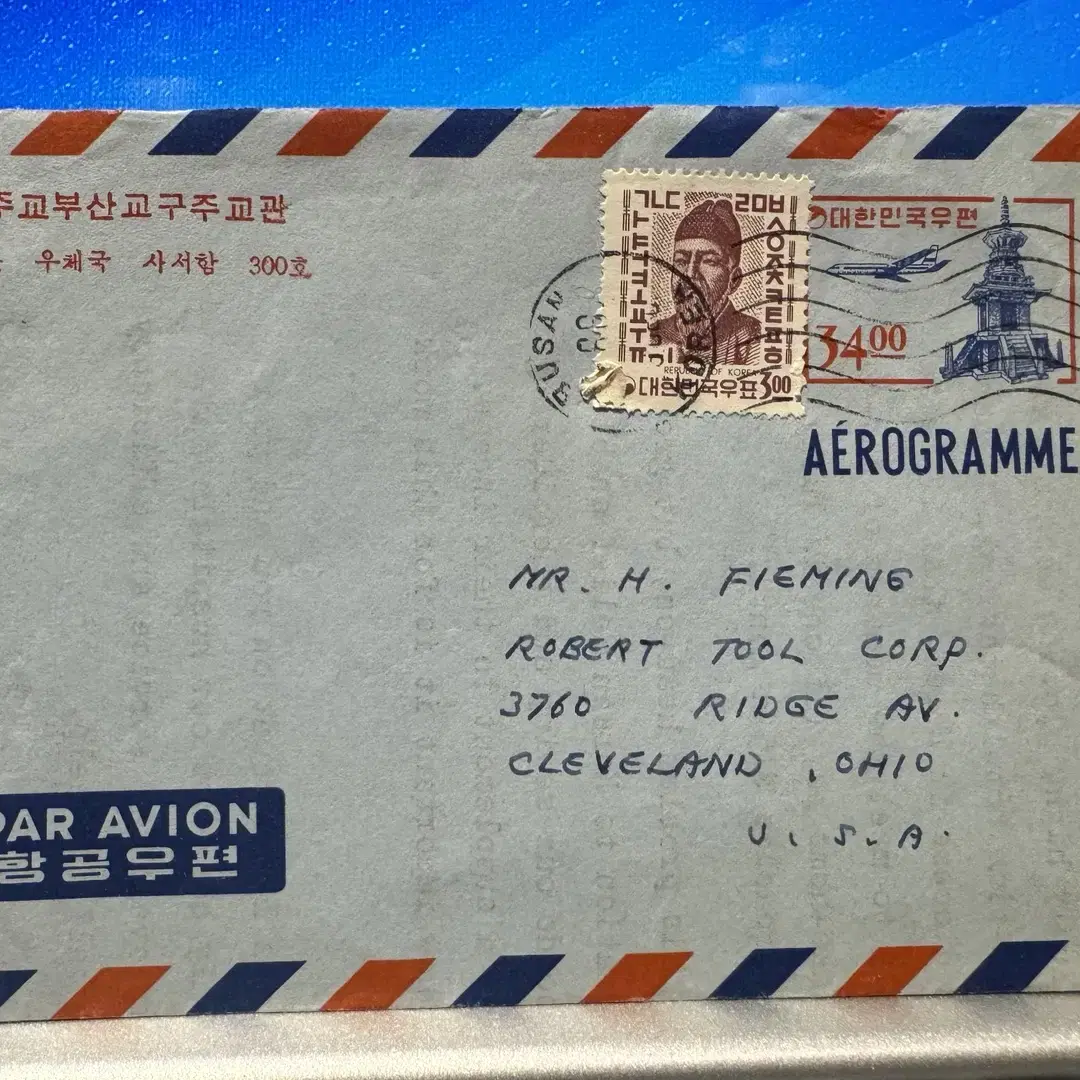 주교부산교구주교관
우체국 사서함 300호
BUSAN
KOREA
ㄱㄴㄷ ㄹㅁㅂ
ㅅㅇㅈㅊㅋㅌㅍㅎ
REPUBLIC OF KOREA
대한민국우표 3.00
대한민국우편
34.00
AÉROGRAMME
MR. H. FIEMING
ROBERT TOOL CORP.
3760 RIDGE AV.
CLEVELAND, OHIO
U.S.A.
PAR AVION
항공우편